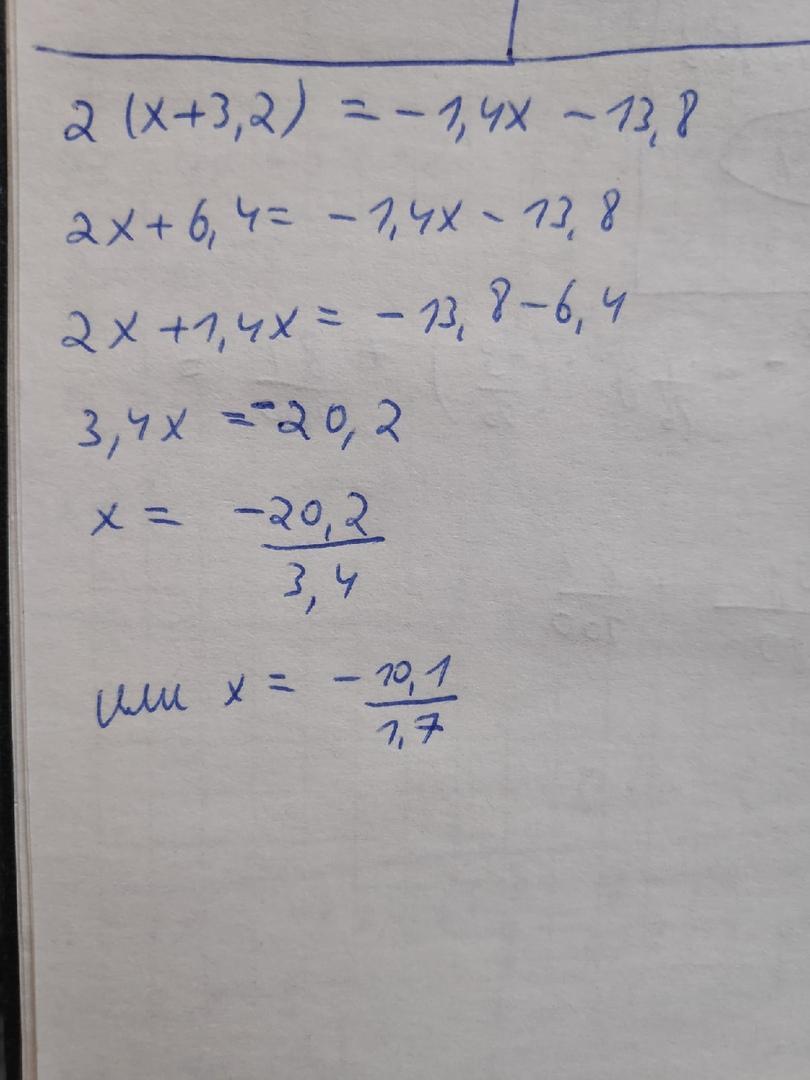 2 (x+3,2) = -1,4x - 13,8
2x + 6,4 = -1,4x - 13,8
2x + 1,4x = -13,8 - 6,4
3,4x = -20,2
x = -20,2
3,4
или x = - 10,1
1,7